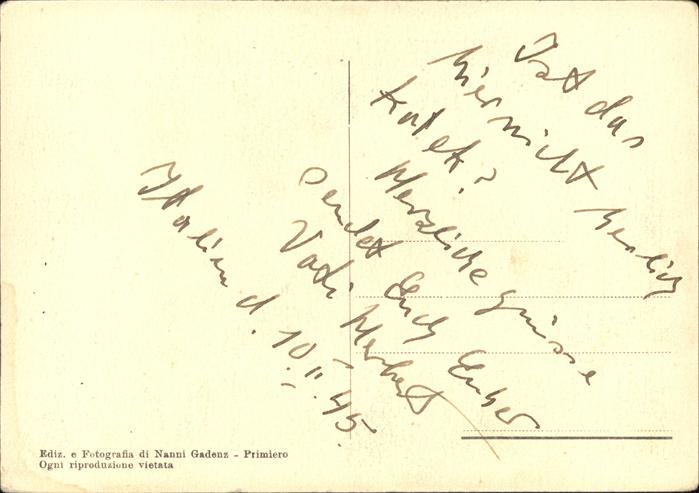 Ist das
hier nicht herlich
Kolet?
Herzliche Grüsse
sendet Euch Euher
Vati Herbert
Italien d. 10.II.45.
Ediz. e Fotografia di Nanni Gadenz - Primiero
Ogni riproduzione vietata